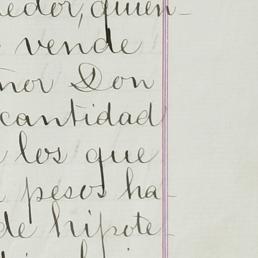 redor, quien
vende
ñor Don
cantidad
los que
pesos ha-
de hipote-